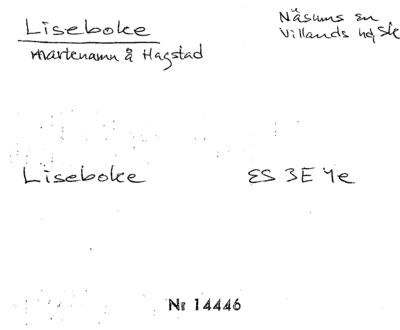 Liseboke
martenamn å Hagstad
Näsums sn
Villands hd Sk
Liseboke
ES 3E 4e
Nr 14446